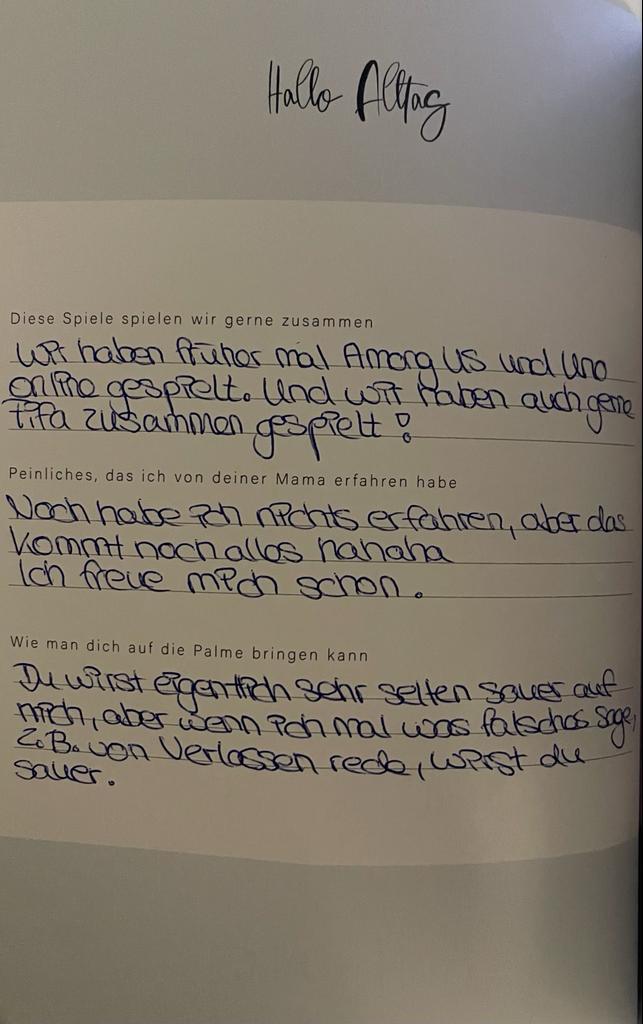 Hallo Alltag
Diese Spiele spielen wir gerne zusammen
Wir haben früher mal Among us und Uno
online gespielt. Und wir haben auch gerne
Fifa zusammen gespielt!
Peinliches, das ich von deiner Mama erfahren habe
Noch habe ich nichts erfahren, aber das
kommt noch alles hahaha
Ich freue mich schon.
Wie man dich auf die Palme bringen kann
Du wirst eigentlich sehr selten sauer auf
mich, aber wenn ich mal was falsches sage,
z.B. von Verlassen rede, wirst du
sauer.